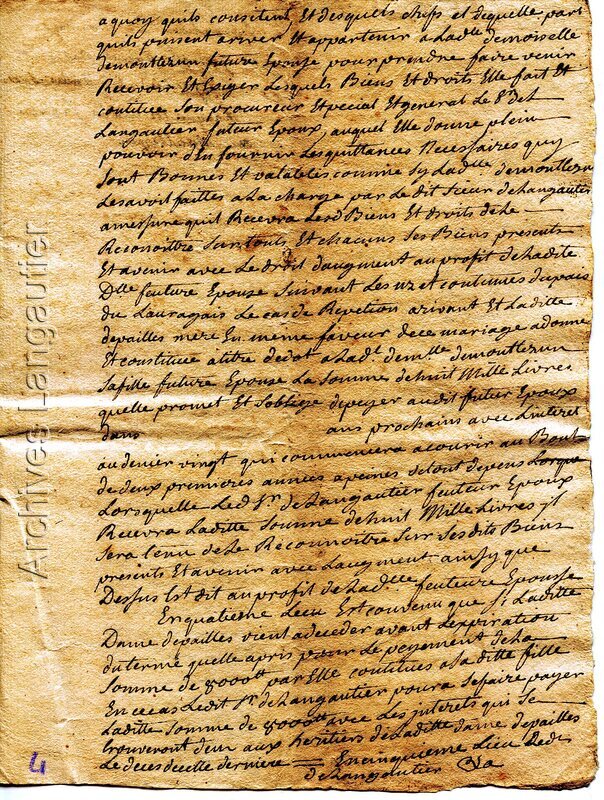 a quoy quils consistent Et desquels chefs et de quelle part
quils puissent ariver Et appartenir a Ladte demoiselle
demontlezun future Epouse pour prendre faire venir
Recevoir Et Exiger Lesquels Biens Et droits Elle fait Et
constitue Son procureur Special Et general Le Sr de
Langautier futeur Epoux, auquel Elle donne plein
pouvoir d'En fournir Les quittances Necessaires quy
Sont Bonnes Et valables comme Sy Ladlle demontlezun
Les avoit faittes a La charge par Le dit Sieur de Langautier
amessure quil Recevra Lesd Biens Et droits de Le
Reconoittre Sur touts Et chacuns Ses Biens presents
Et avenir avec Le droit daugment au profit de Ladite
Dlle feuture Epouse Suivant Les uz et coutumes du pais
du Lauragais Le cas de Repetion arivant Et Laditte
depailles mere En meme faveur de ce mariage a donné
Et constitué a titre de dot a Lade demlle demontlezun
Sa fille future Epouse La Somme de huit Mille Livres
quelle promet Et Soblige depayer audit futur Epoux
dans ans prochains avec Linteret
au denier vingt qui commencera a courir au Bout
de deux premieres années a peine de tout depens Lorque
Lorsquelle Led Sr. de Langautier feuteur Epoux
Recevra Laditte Somme de huit Mille Livres jl
Sera tenu de Le Reconnoitre Sur Ses dits Biens
presents Et avenir avec Laugment ainsy que
Dessus Est dit au profit de Ladlle feuteure Epousse
En quatieme Lieu Est convenu que Sy Laditte
Dame depailles vient a deceder avant Lexpiration
du terme quelle a pris pour Le payement de La
Somme de 8000tt par Elle constituée a La ditte fille
En ce cas Ledit Sr de Langautier poura Se faire payer
Laditte Somme de 8000tt avec Les interets qui Se
trouveront deus aux heritiers de Laditte dame depailles
Le deces de celle derniere = En cinquieme Lieu Led Sr
de Langautier
Archives Langautier
4